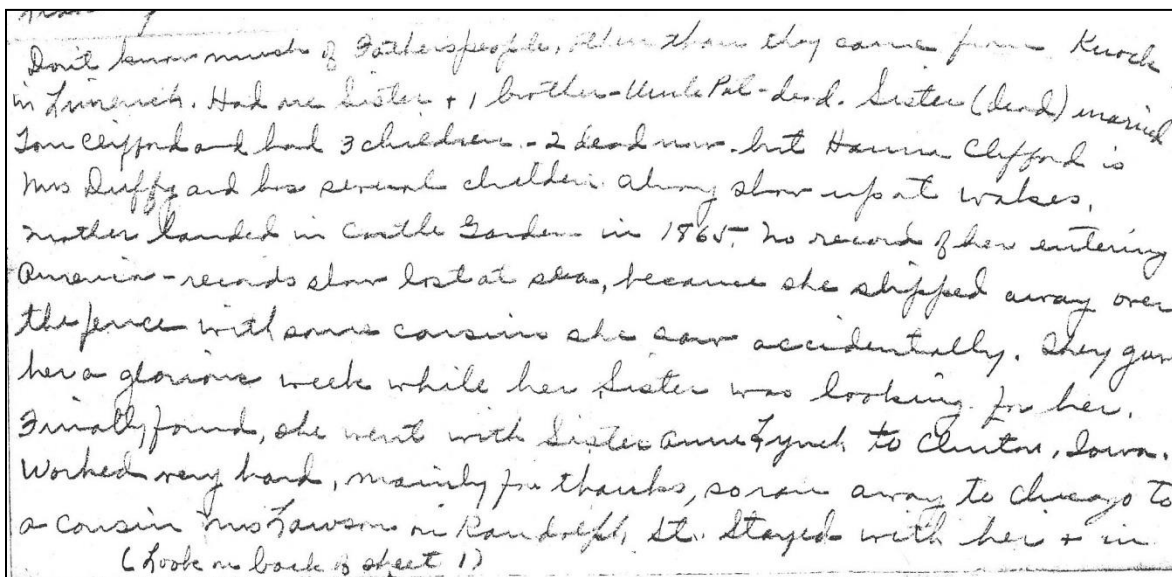 Don't know much of Fathers people, other than they came from Knock
in Limerick. Had one Sister + 1 brother - Uncle Pat - dead. Sister (dead) married
Tom Clifford and had 3 children - 2 dead now. but Hanna Clifford is
Mrs Duffy and has several children. Always show up at wakes.
Mother landed in Castle Garden in 1865. No record of her entering
America - records show lost at sea, because she slipped away over
the fence with some cousins she saw accidentally. They gave
her a glorious week while her Sister was looking for her.
Finally found, she went with Sister Anne Lynch to Clinton, Iowa.
Worked very hard, mainly for thanks, so ran away to Chicago to
a cousin Mrs Lawson on Randolph St. Stayed with her + in
(Look on back of sheet 1)